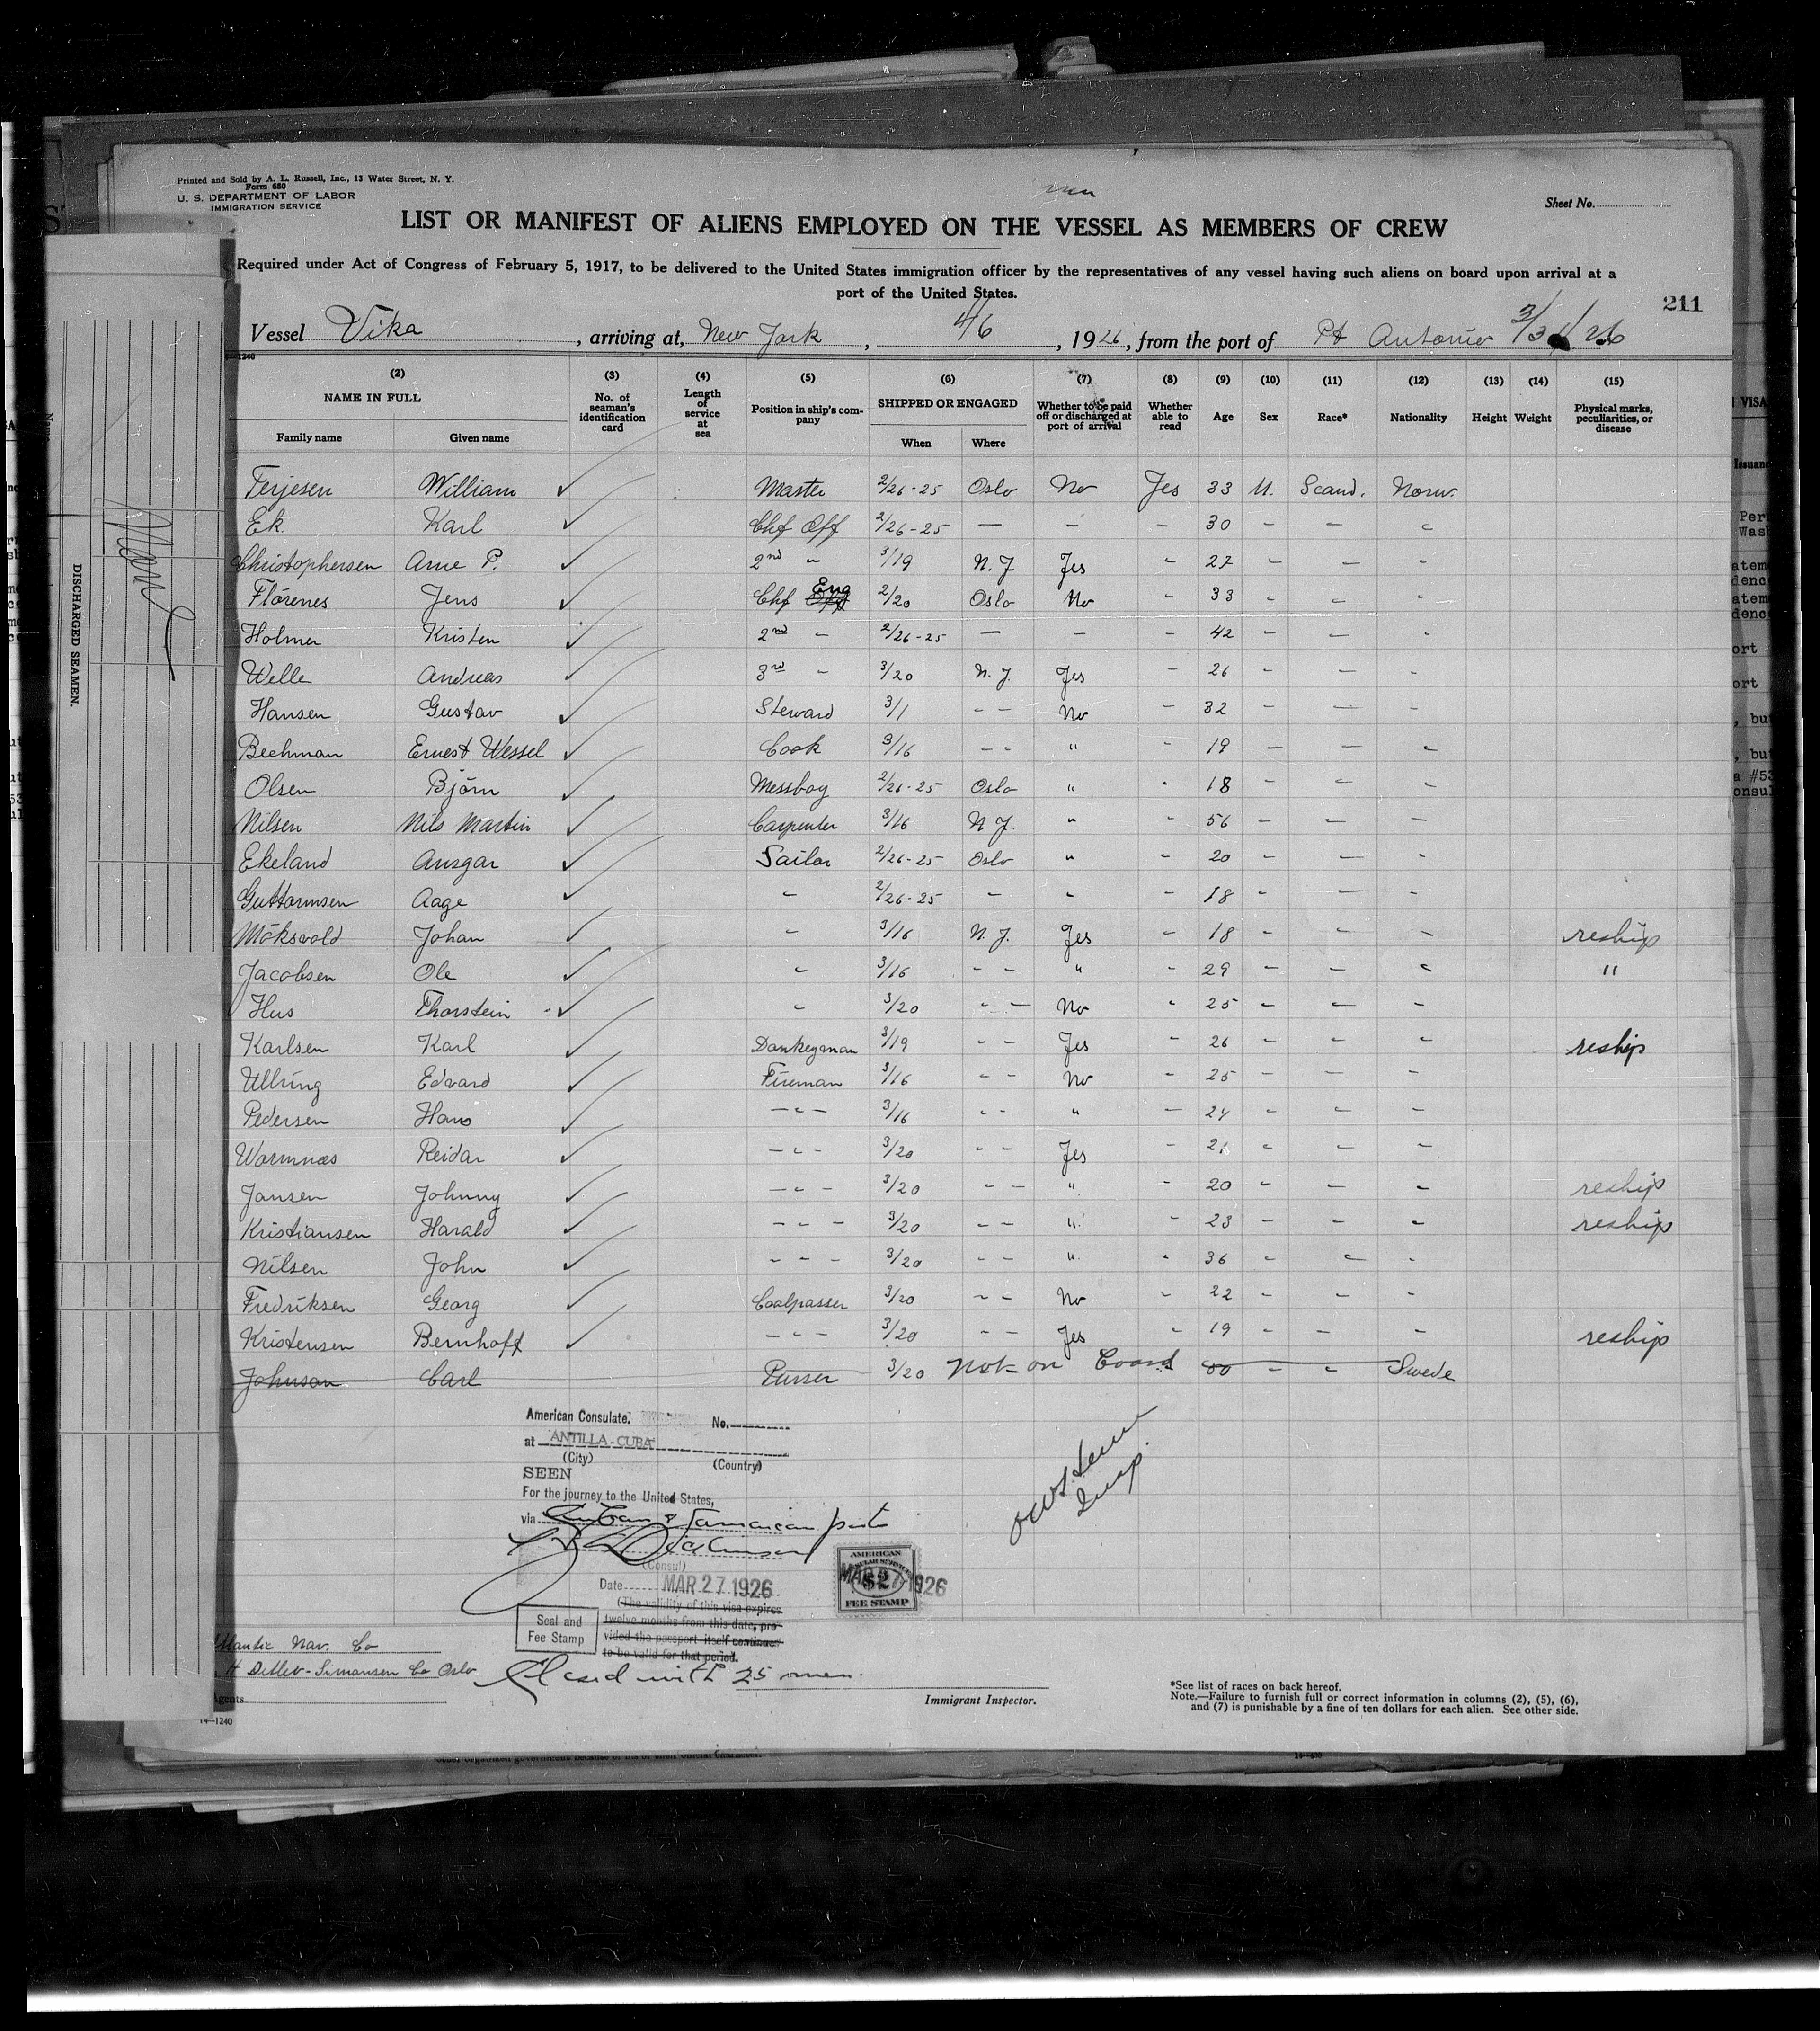 Printed and Sold by A. L. Russell, Inc., 13 Water Street, N. Y.
Form 680
U. S. DEPARTMENT OF LABOR
IMMIGRATION SERVICE
Sheet No.
LIST OR MANIFEST OF ALIENS EMPLOYED ON THE VESSEL AS MEMBERS OF CREW
Required under Act of Congress of February 5, 1917, to be delivered to the United States immigration officer by the representatives of any vessel having such aliens on board upon arrival at a
port of the United States.
211
Vessel Vika, arriving at, New York, 4/6, 1926, from the port of Pt Antonio
(2) (3) (4) (5) (6) (7) (8) (9) (10) (11) (12) (13) (14) (15)
NAME IN FULL No. of seaman's identification card Length of service at sea Position in ship's company SHIPPED OR ENGAGED Whether to be paid off or discharged at port of arrival Whether able to read Age Sex Race* Nationality Height Weight Physical marks, peculiarities, or disease
Family name Given name When Where
Terjesen William ✓ Master 2/26-25 Oslo No Yes 33 M. Scand. Norw.
Ek. Karl ✓ Chf Off 2/26-25 — - - 30 - - -
Christophersen Arne P. ✓ 2nd - 3/19 N. Y Yes - 27 - - -
Flörenes Jens ✓ Chf Eng 2/20 Oslo No - 33 - - -
Holmer Kristen ✓ 2nd - 2/26-25 — - - 42 - - -
Welle Andreas ✓ 3rd - 3/20 N. Y. Yes - 26 - - -
Hansen Gustav ✓ Steward 3/1 - - No - 32 - - -
Bechman Ernest Wessel ✓ Cook 3/16 - - " - 19 - - -
Olsen Björn ✓ Messboy 2/26-25 Oslo " - 18 - - -
Nilsen Nils Martin ✓ Carpenter 3/16 N Y. " - 56 - - -
Ekeland Ansgar ✓ Sailor 2/26-25 Oslo " - 20 - - -
Guttormsen Aage ✓ - 2/26-25 - - - 18 - - -
Möksvold Johan ✓ - 3/16 N. Y. Yes - 18 - - - reship
Jacobsen Ole ✓ - 3/16 - - " - 29 - - - "
Hus Thorstein ✓ - 3/20 - - No - 25 - - -
Karlsen Karl ✓ Donkeyman 3/19 - - Yes - 26 - - - reship
Ullring Edvard ✓ Fireman 3/16 - - No - 25 - - -
Pedersen Hans ✓ - - - 3/16 - - " - 24 - - -
Warmnæs Reidar ✓ - - - 3/20 - - Yes - - - -
Jansen Johnny ✓ - - - 3/20 - - " - 20 - - - reship
Kristiansen Harald ✓ - - - 3/20 - - " - 23 - - - reship
Nilsen John ✓ - - - 3/20 - - " - 36 - - -
Fredriksen Georg ✓ Coalpasser 3/20 - - No - 22 - - -
Kristensen Bernhoff ✓ - - - 3/20 - - Yes - 19 - - - reship
Johnson Carl Purser 3/20 Not on board - - Swede
American Consulate. No.
at ANTILLA-CUBA
(City) (Country)
SEEN
For the journey to the United States,
via Cuban & Jamaican ports
(Consul)
Date MAR 27 1926
(The validity of this visa expires
twelve months from this date, pro-
vided the passport itself continues
to be valid for that period.
Seal and
Fee Stamp
AMERICAN
CONSULAR SERVICE
$2
FEE STAMP
MAR 27 1926
Insp.
Atlantic Nav. Co
H Ditlev-Simonsen Co Oslo
Agents
Closed with 25 men.
Immigrant Inspector.
*See list of races on back hereof.
Note.—Failure to furnish full or correct information in columns (2), (5), (6),
and (7) is punishable by a fine of ten dollars for each alien. See other side.
14—1240
DISCHARGED SEAMEN.